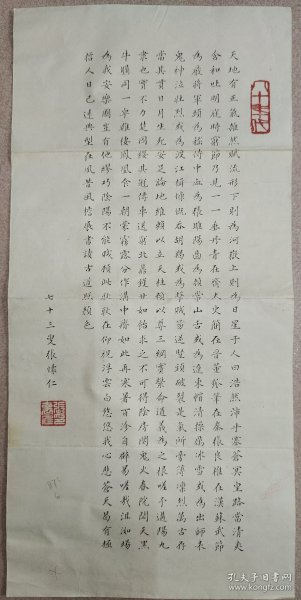 天地有正氣雜然賦流形下則為河嶽上則為日星于人曰浩然沛乎塞蒼冥皇路當清
含和吐明庭時窮節乃見一一垂丹青在齊太史簡在晉董狐筆在秦張良椎在漢蘇武節
為嚴將軍頭為嵇侍中血為張睢陽齒為顏常山舌或為遼東帽清操厲冰雪或為出師表
鬼神泣壯烈或為渡江楫慷慨吞胡羯或為擊賊笏逆豎頭破裂是氣所旁薄凜烈萬古存
當其貫日月生死安足論地維賴以立天柱賴以尊三綱實繫命道義為之根嗟予遘陽九
隸也實不力楚囚纓其冠傳車送窮北鼎鑊甘如飴求之不可得陰房闃鬼火春院閟天黑
牛驥同一皁雞棲鳳凰食一朝蒙霧露分作溝中瘠如此再寒暑百沴自辟易嗟哉沮洳場
為我安樂國豈有他繆巧陰陽不能賊顧此耿耿在仰視浮雲白悠悠我心悲蒼天曷有極
哲人日已遠典型在夙昔風檐展書讀古道照顏色
七十三叟張煒仁
孔夫子旧书网